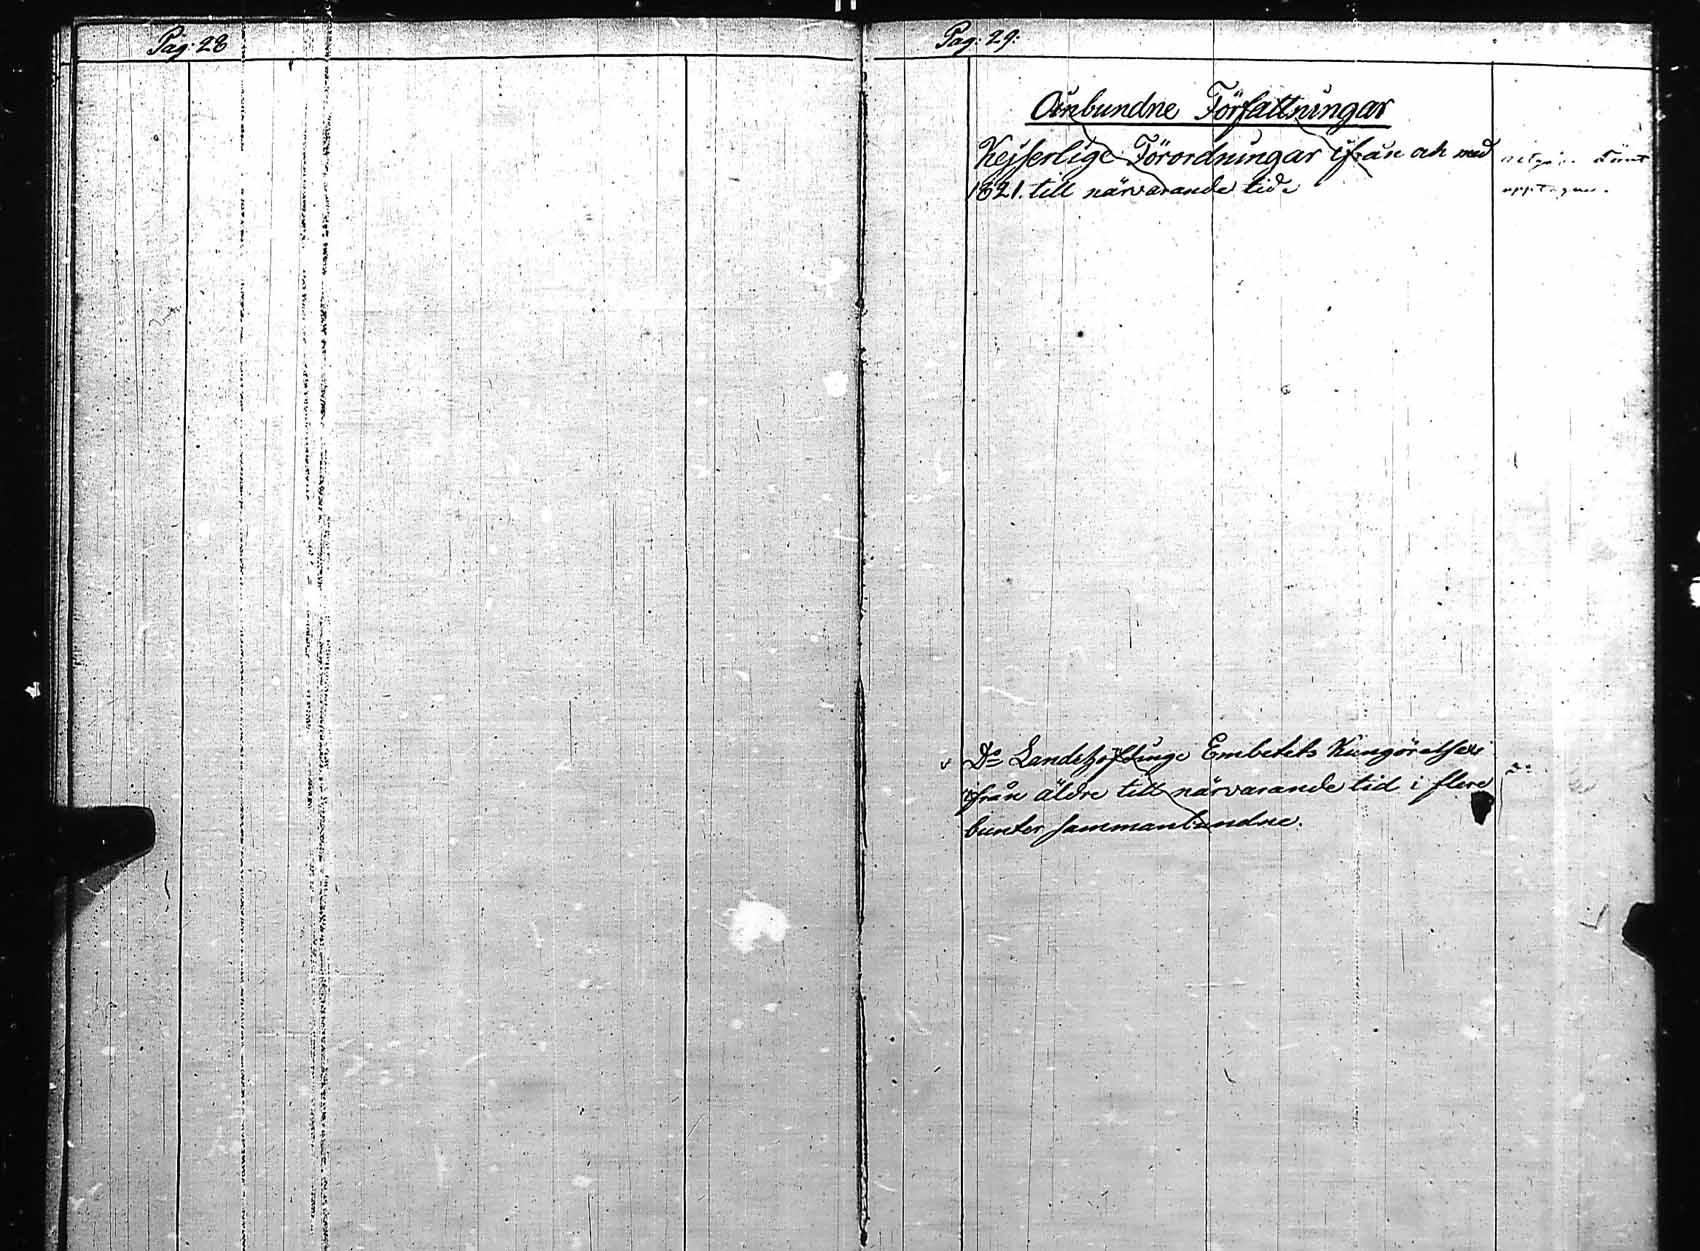 Pag: 28
Pag: 29.
Oinbundne Författningar
Kejserlige Förordningar ifrån och med
1821. till närvarande tid.
upptagne.
Do Landshöfdinge Embetets Kungörelser
ifrån äldre till närvarande tid i flere
bunter sammanbundne.
Do